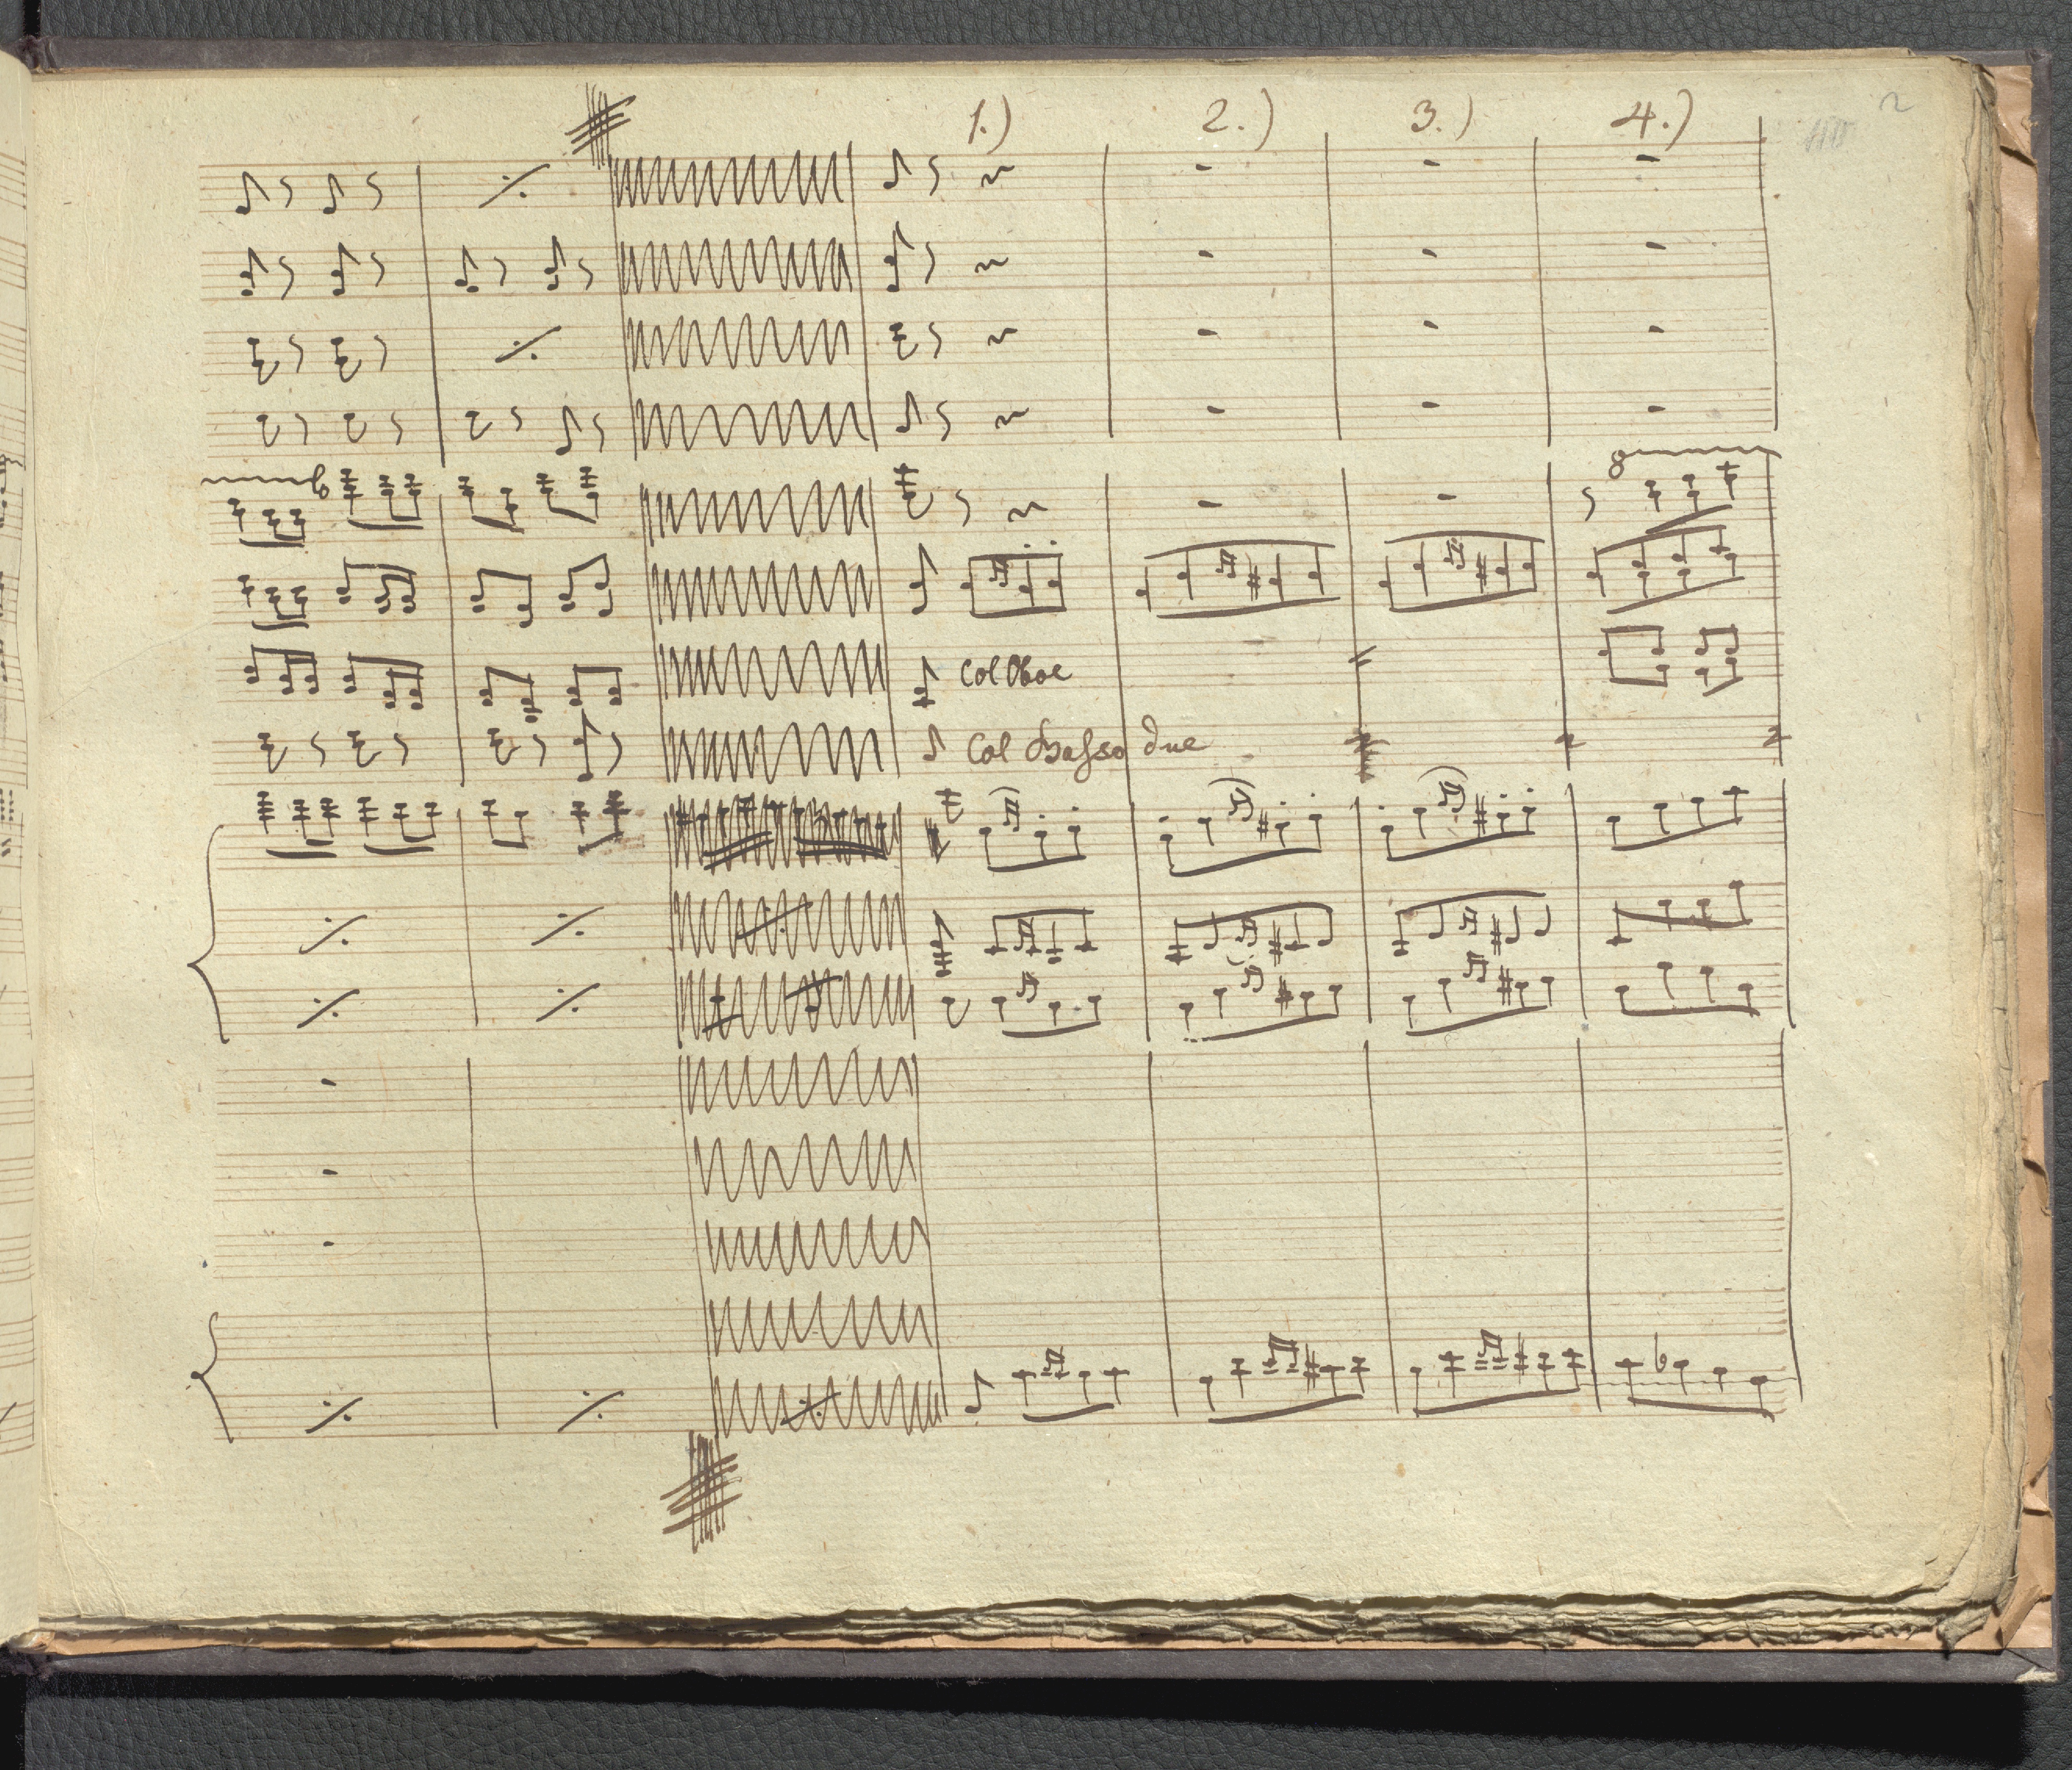 1.) 2.) 3.) 4.)
8
Col Oboe
Col Basso due